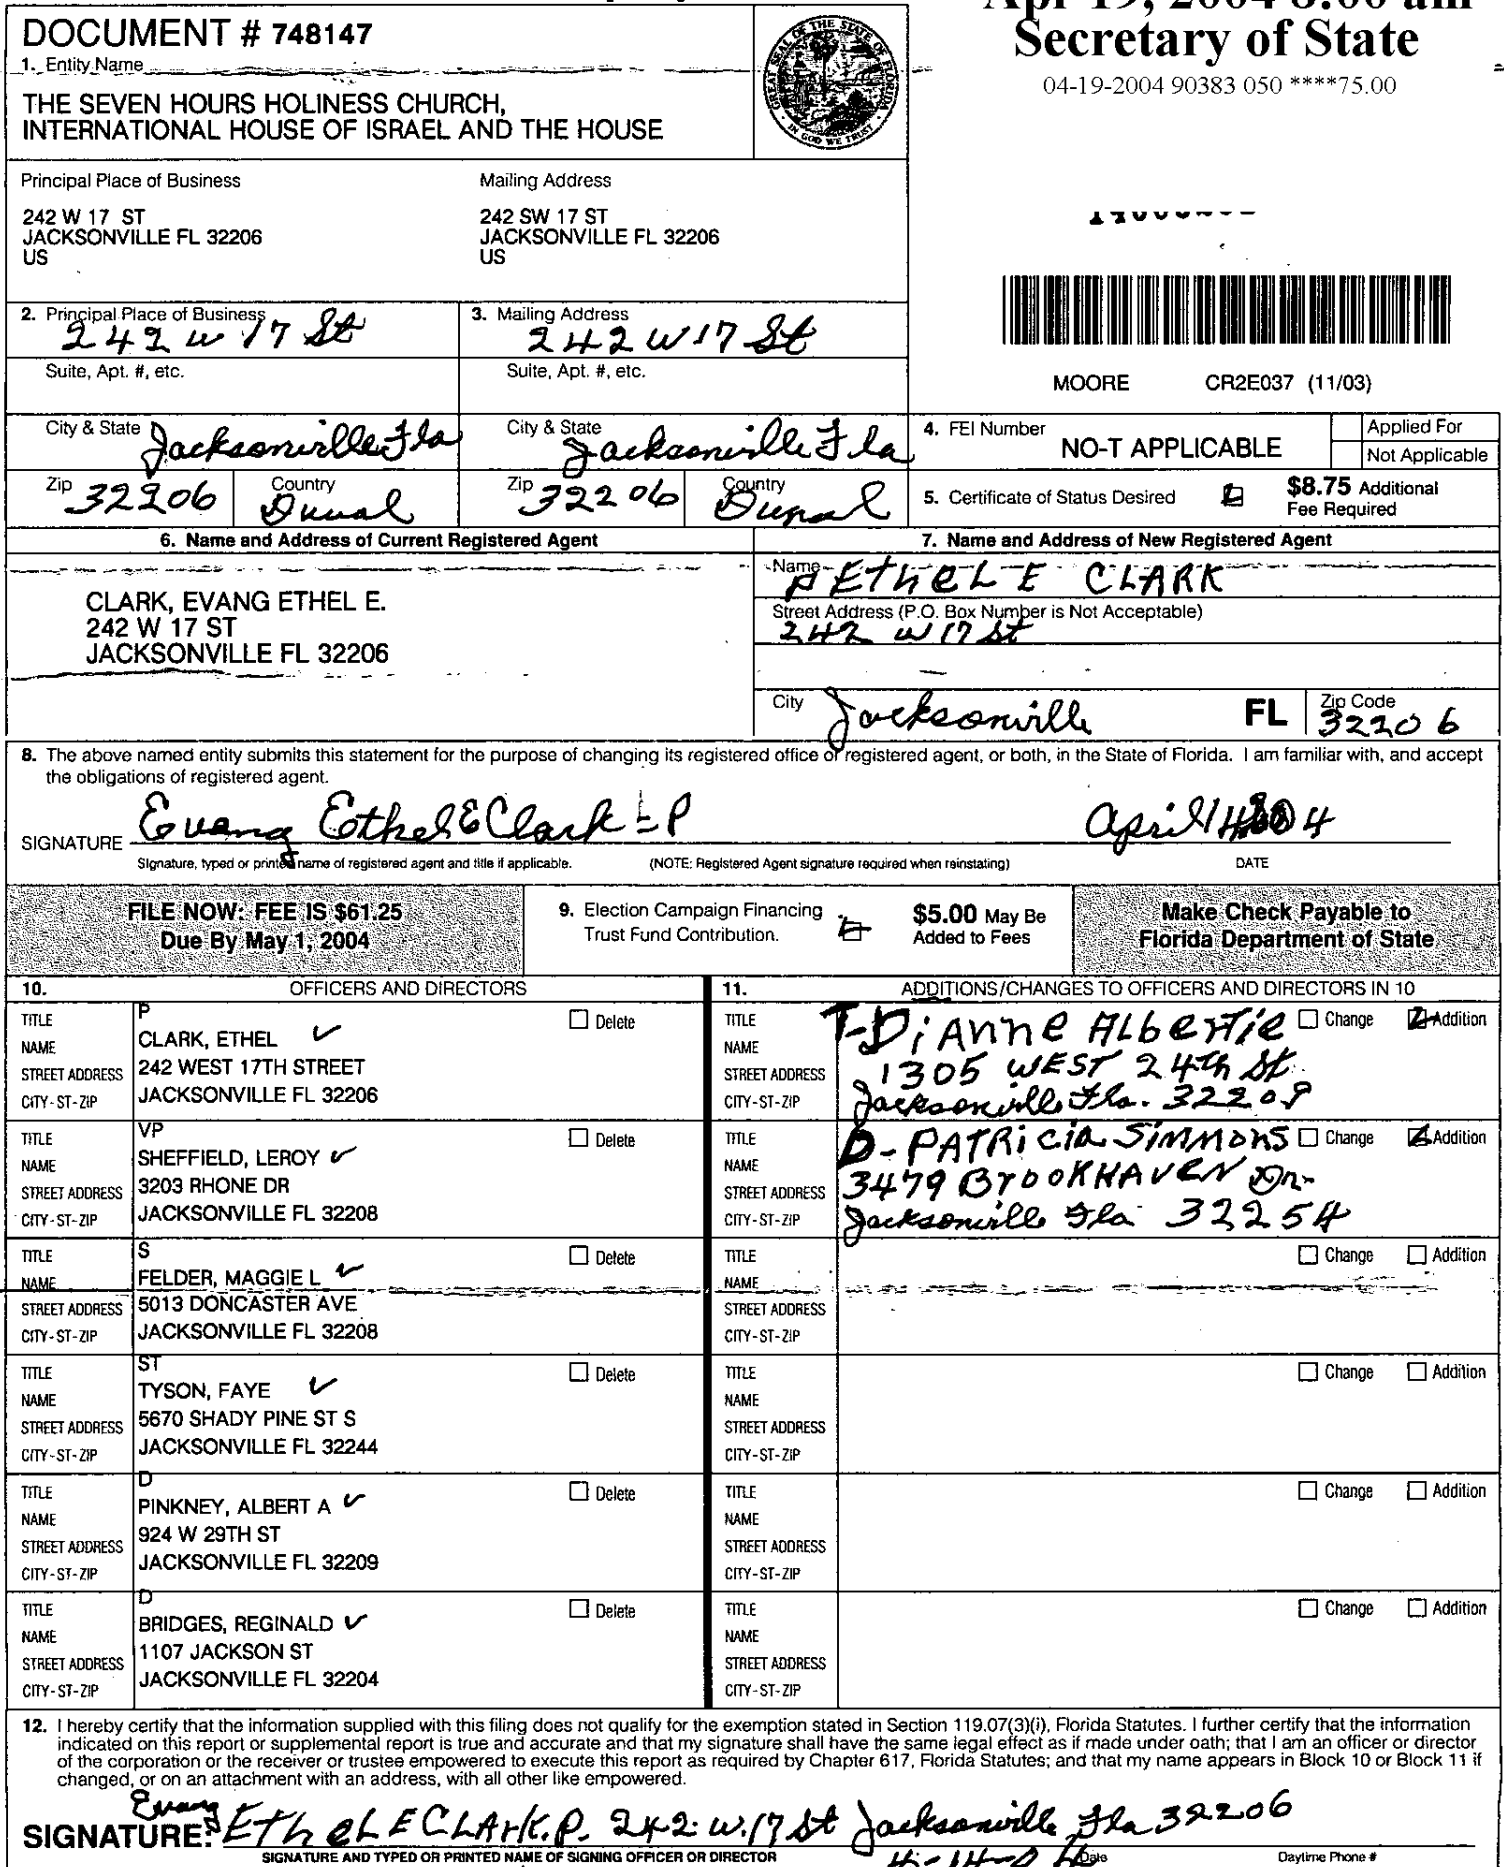 DOCUMENT # 748147
1. Entity Name
THE SEVEN HOURS HOLINESS CHURCH,
INTERNATIONAL HOUSE OF ISRAEL AND THE HOUSE
GREAT SEAL OF THE STATE OF FLORIDA
IN GOD WE TRUST
Apr 19, 2004 8:00 am
Secretary of State
04-19-2004 90383 050 ****75.00
Principal Place of Business
242 W 17 ST
JACKSONVILLE FL 32206
US
Mailing Address
242 SW 17 ST
JACKSONVILLE FL 32206
US
MOORE CR2E037 (11/03)
2. Principal Place of Business
242 W 17 St
3. Mailing Address
242 W 17 St
Suite, Apt. #, etc.
Suite, Apt. #, etc.
City & State Jacksonville Fla
City & State Jacksonville Fla
Zip 32206 Country Duval
Zip 32206 Country Duval
4. FEI Number NO-T APPLICABLE
Applied For
Not Applicable
5. Certificate of Status Desired $8.75 Additional
Fee Required
6. Name and Address of Current Registered Agent
CLARK, EVANG ETHEL E.
242 W 17 ST
JACKSONVILLE FL 32206
7. Name and Address of New Registered Agent
Name P EthEL E CLARK
Street Address (P.O. Box Number is Not Acceptable)
242 W 17 St
City Jacksonville FL Zip Code 32206
8. The above named entity submits this statement for the purpose of changing its registered office or registered agent, or both, in the State of Florida. I am familiar with, and accept
the obligations of registered agent.
SIGNATURE Evang Ethel E Clark - P April 14
Signature, typed or printed name of registered agent and title if applicable. (NOTE: Registered Agent signature required when reinstating) DATE
FILE NOW: FEE IS $61.25
Due By May 1, 2004
9. Election Campaign Financing
Trust Fund Contribution.
$5.00 May Be
Added to Fees
Make Check Payable to
Florida Department of State
10. OFFICERS AND DIRECTORS
TITLE P Delete
NAME CLARK, ETHEL
STREET ADDRESS 242 WEST 17TH STREET
CITY-ST-ZIP JACKSONVILLE FL 32206
TITLE VP Delete
NAME SHEFFIELD, LEROY
STREET ADDRESS 3203 RHONE DR
CITY-ST-ZIP JACKSONVILLE FL 32208
TITLE S Delete
NAME FELDER, MAGGIE L
STREET ADDRESS 5013 DONCASTER AVE
CITY-ST-ZIP JACKSONVILLE FL 32208
TITLE ST Delete
NAME TYSON, FAYE
STREET ADDRESS 5670 SHADY PINE ST S
CITY-ST-ZIP JACKSONVILLE FL 32244
TITLE D Delete
NAME PINKNEY, ALBERT A
STREET ADDRESS 924 W 29TH ST
CITY-ST-ZIP JACKSONVILLE FL 32209
TITLE D Delete
NAME BRIDGES, REGINALD
STREET ADDRESS 1107 JACKSON ST
CITY-ST-ZIP JACKSONVILLE FL 32204
11. ADDITIONS/CHANGES TO OFFICERS AND DIRECTORS IN 10
TITLE T-DiAnne Albertie Change Addition
NAME
STREET ADDRESS 1305 WEST 24th St
CITY-ST-ZIP Jacksonville Fla. 32209
TITLE D- PATRiciA SiMMONS Change Addition
NAME
STREET ADDRESS 3479 BrooKHAVEN Dr.
CITY-ST-ZIP Jacksonville Fla 32254
TITLE Change Addition
NAME
STREET ADDRESS
CITY-ST-ZIP
TITLE Change Addition
NAME
STREET ADDRESS
CITY-ST-ZIP
TITLE Change Addition
NAME
STREET ADDRESS
CITY-ST-ZIP
TITLE Change Addition
NAME
STREET ADDRESS
CITY-ST-ZIP
12. I hereby certify that the information supplied with this filing does not qualify for the exemption stated in Section 119.07(3)(i), Florida Statutes. I further certify that the information
indicated on this report or supplemental report is true and accurate and that my signature shall have the same legal effect as if made under oath; that I am an officer or director
of the corporation or the receiver or trustee empowered to execute this report as required by Chapter 617, Florida Statutes; and that my name appears in Block 10 or Block 11 if
changed, or on an attachment with an address, with all other like empowered.
Evang
SIGNATURE: EthEL E CLARK.P. 242 W.17 St Jacksonville Fla 32206
SIGNATURE AND TYPED OR PRINTED NAME OF SIGNING OFFICER OR DIRECTOR Date Daytime Phone #